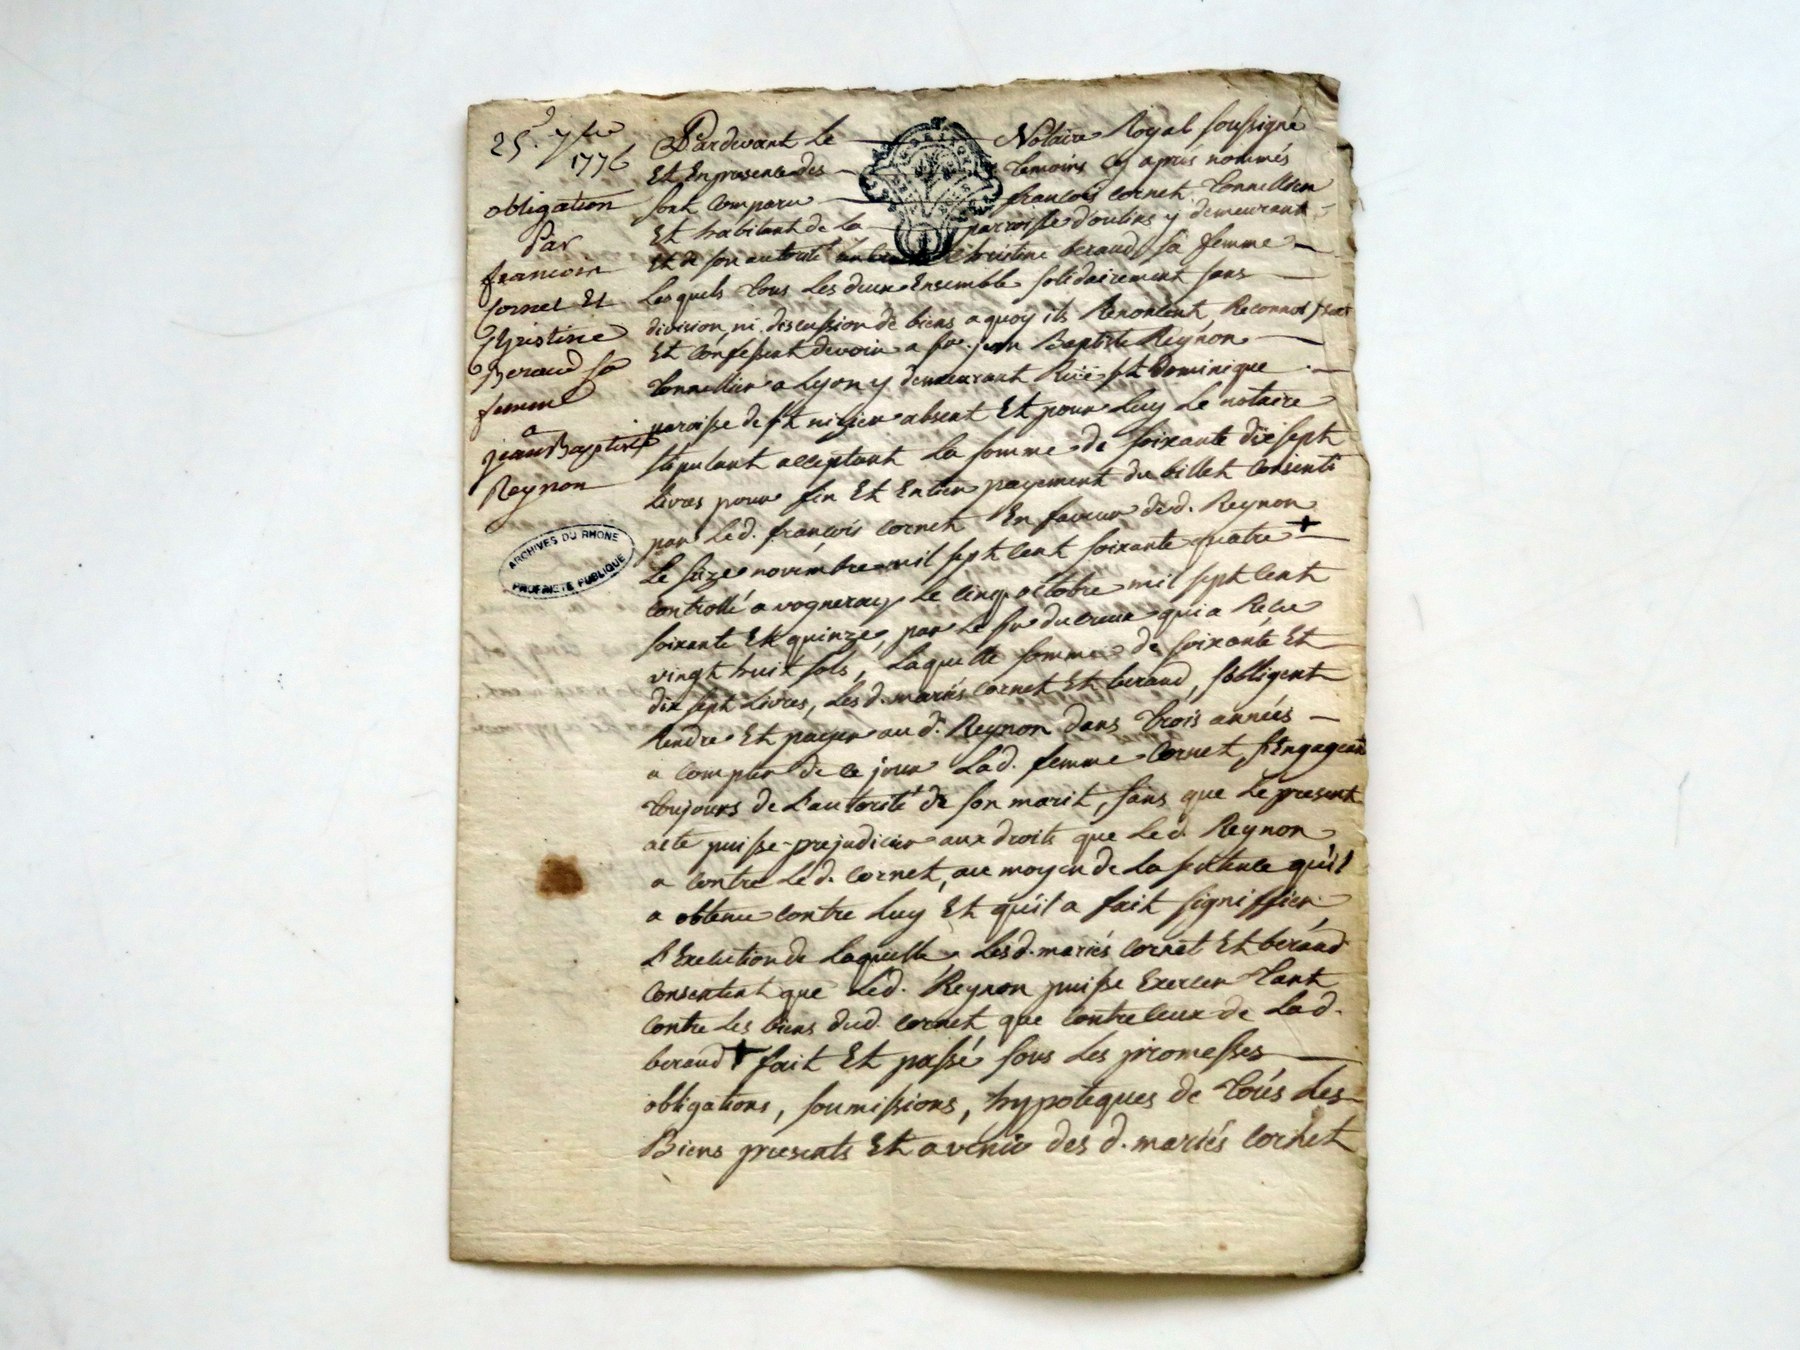 25. 7bre
1776
obligation
Par
francois
Cornet Et
Christine
Beraud sa
femme
a
jean Baptiste
Reynon
ARCHIVES DU RHONE
PROPRIÉTÉ PUBLIQUE
Pardevant Le Notaire Royal soussigné
Et En presence des temoins cy après nommés
sont comparu françois Cornet Tonnellier
Et habitant de la parroisse d'oulins y demeurant
Et de son autorité Christine beraud sa femme
Lesquels tous Les deux Ensemble solidairement sans
division, ni discussion de biens a quoy ils Renoncent, Reconnoissent
Et Confessent devoir a sr. jean Baptiste Reynon
Tonnellier a Lyon y demeurant Rüe st Dominique
paroisse de st nizier absent Et pour Luy Le notaire
stipulant acceptant La somme de soixante dix sept
Livres pour fin Et Entier payement du billet Consenti
par Led. françois Cornet En faveur dud. Reynon
Le seize novembre mil sept cent soixante quatre +
Controllé a vogneray Le cinq octobre mil sept cent
soixante Et quinze, par Le sr ducreux qui a Reçu
vingt huit sols, Laquelle somme de soixante Et
dix sept Livres, Les d. mariés Cornet Et beraud, s'obligent
Rendre Et payer au d. Reynon dans trois années
a compter de ce jour Lad. femme Cornet, s'Engageant
toujours de L'autorité de son marit, sans que Le present
acte puisse prejudicier aux droits que Led. Reynon
a contre Led. Cornet, au moyen de La sentence qu'il
a obtenue contre Luy Et qu'il a fait signiffier
L'Execution de Laquelle Les d. mariés Cornet Et beraud
Consentent que Led. Reynon puisse Exercer tant
Contre Les biens dud. Cornet que Contre Ceux de Lad.
beraud + fait Et passé sous Les promesses
obligations, soumissions, hypoteques de toús Les
Biens presents Et avenir des d. mariés Cornet